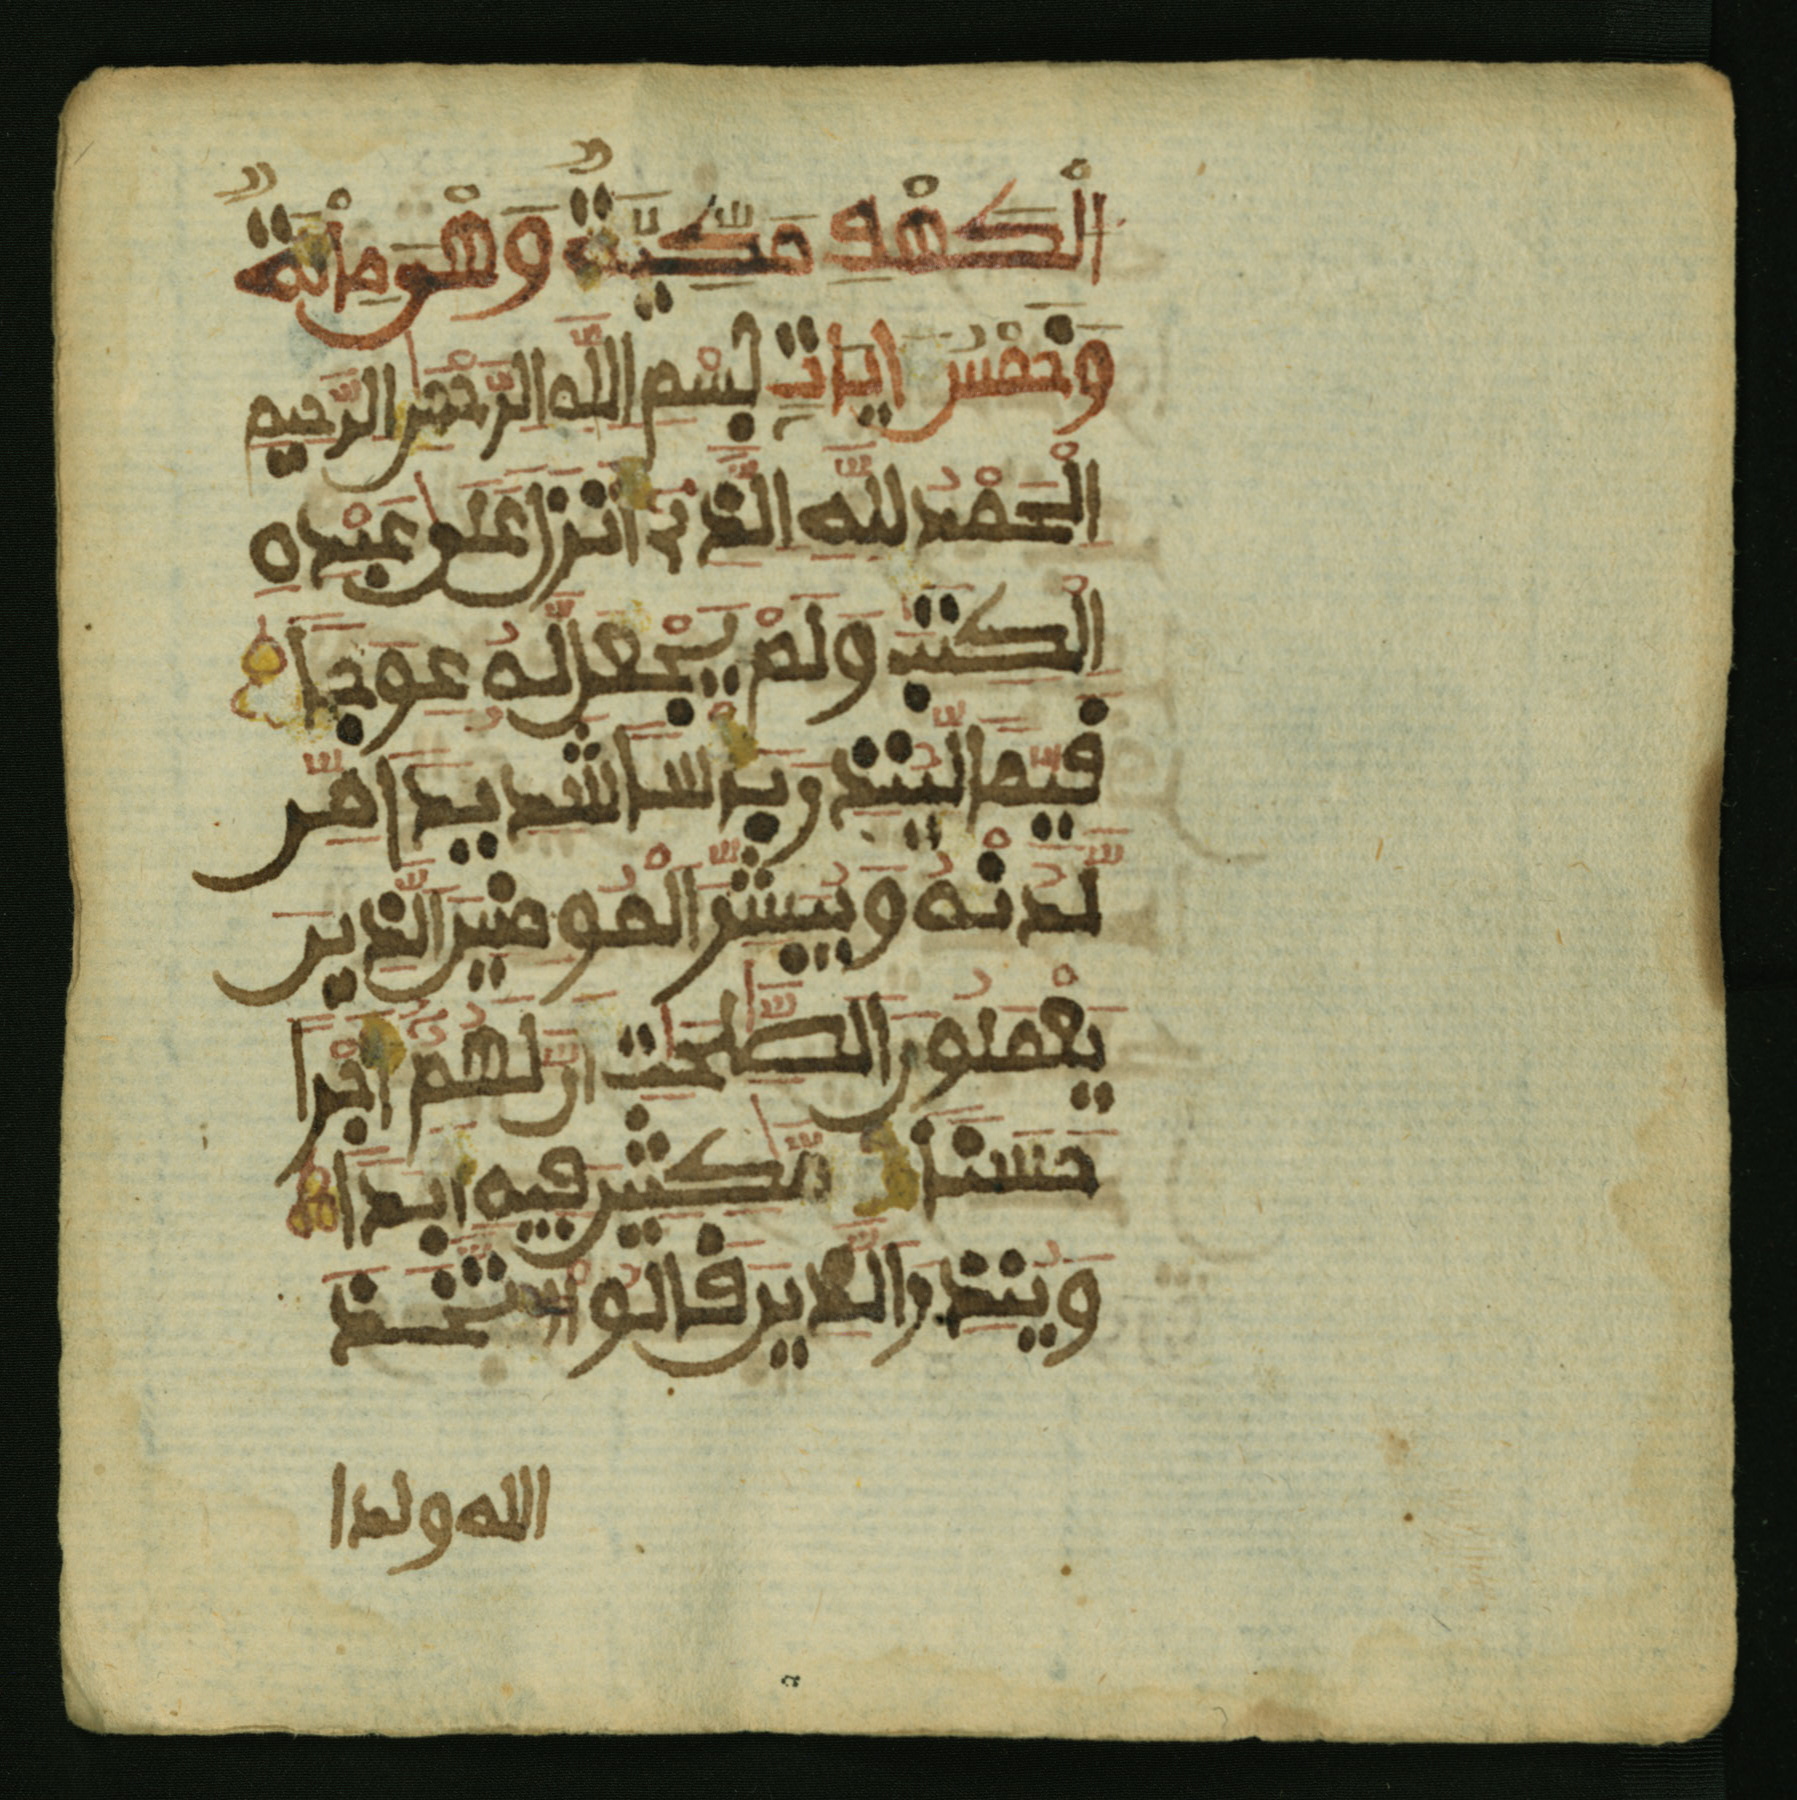 الْكَهْفِ مَكِّيَّةٌ وَهْىَ مِائَةٌ
وَخَمْسُ ءَايَاتٍ بِسْمِ اللَّهِ الرَّحْمَٰنِ الرَّحِيمِ
الْحَمْدُ لِلَّهِ الَّذِي أَنزَلَ عَلَىٰ عَبْدِهِ
الْكِتَٰبَ وَلَمْ يَجْعَل لَّهُ عِوَجًا
قَيِّمًا لِّيُنذِرَ بَأْسًا شَدِيدًا مِّن
لَّدُنْهُ وَيُبَشِّرَ الْمُومِنِينَ الَّذِينَ
يَعْمَلُونَ الصَّٰلِحَٰتِ أَنَّ لَهُمْ أَجْرًا
حَسَنًا مَّٰكِثِينَ فِيهِ أَبَدًا
وَيُنذِرَ الَّذِينَ قَالُوا اتَّخَذَ
الله ولدا